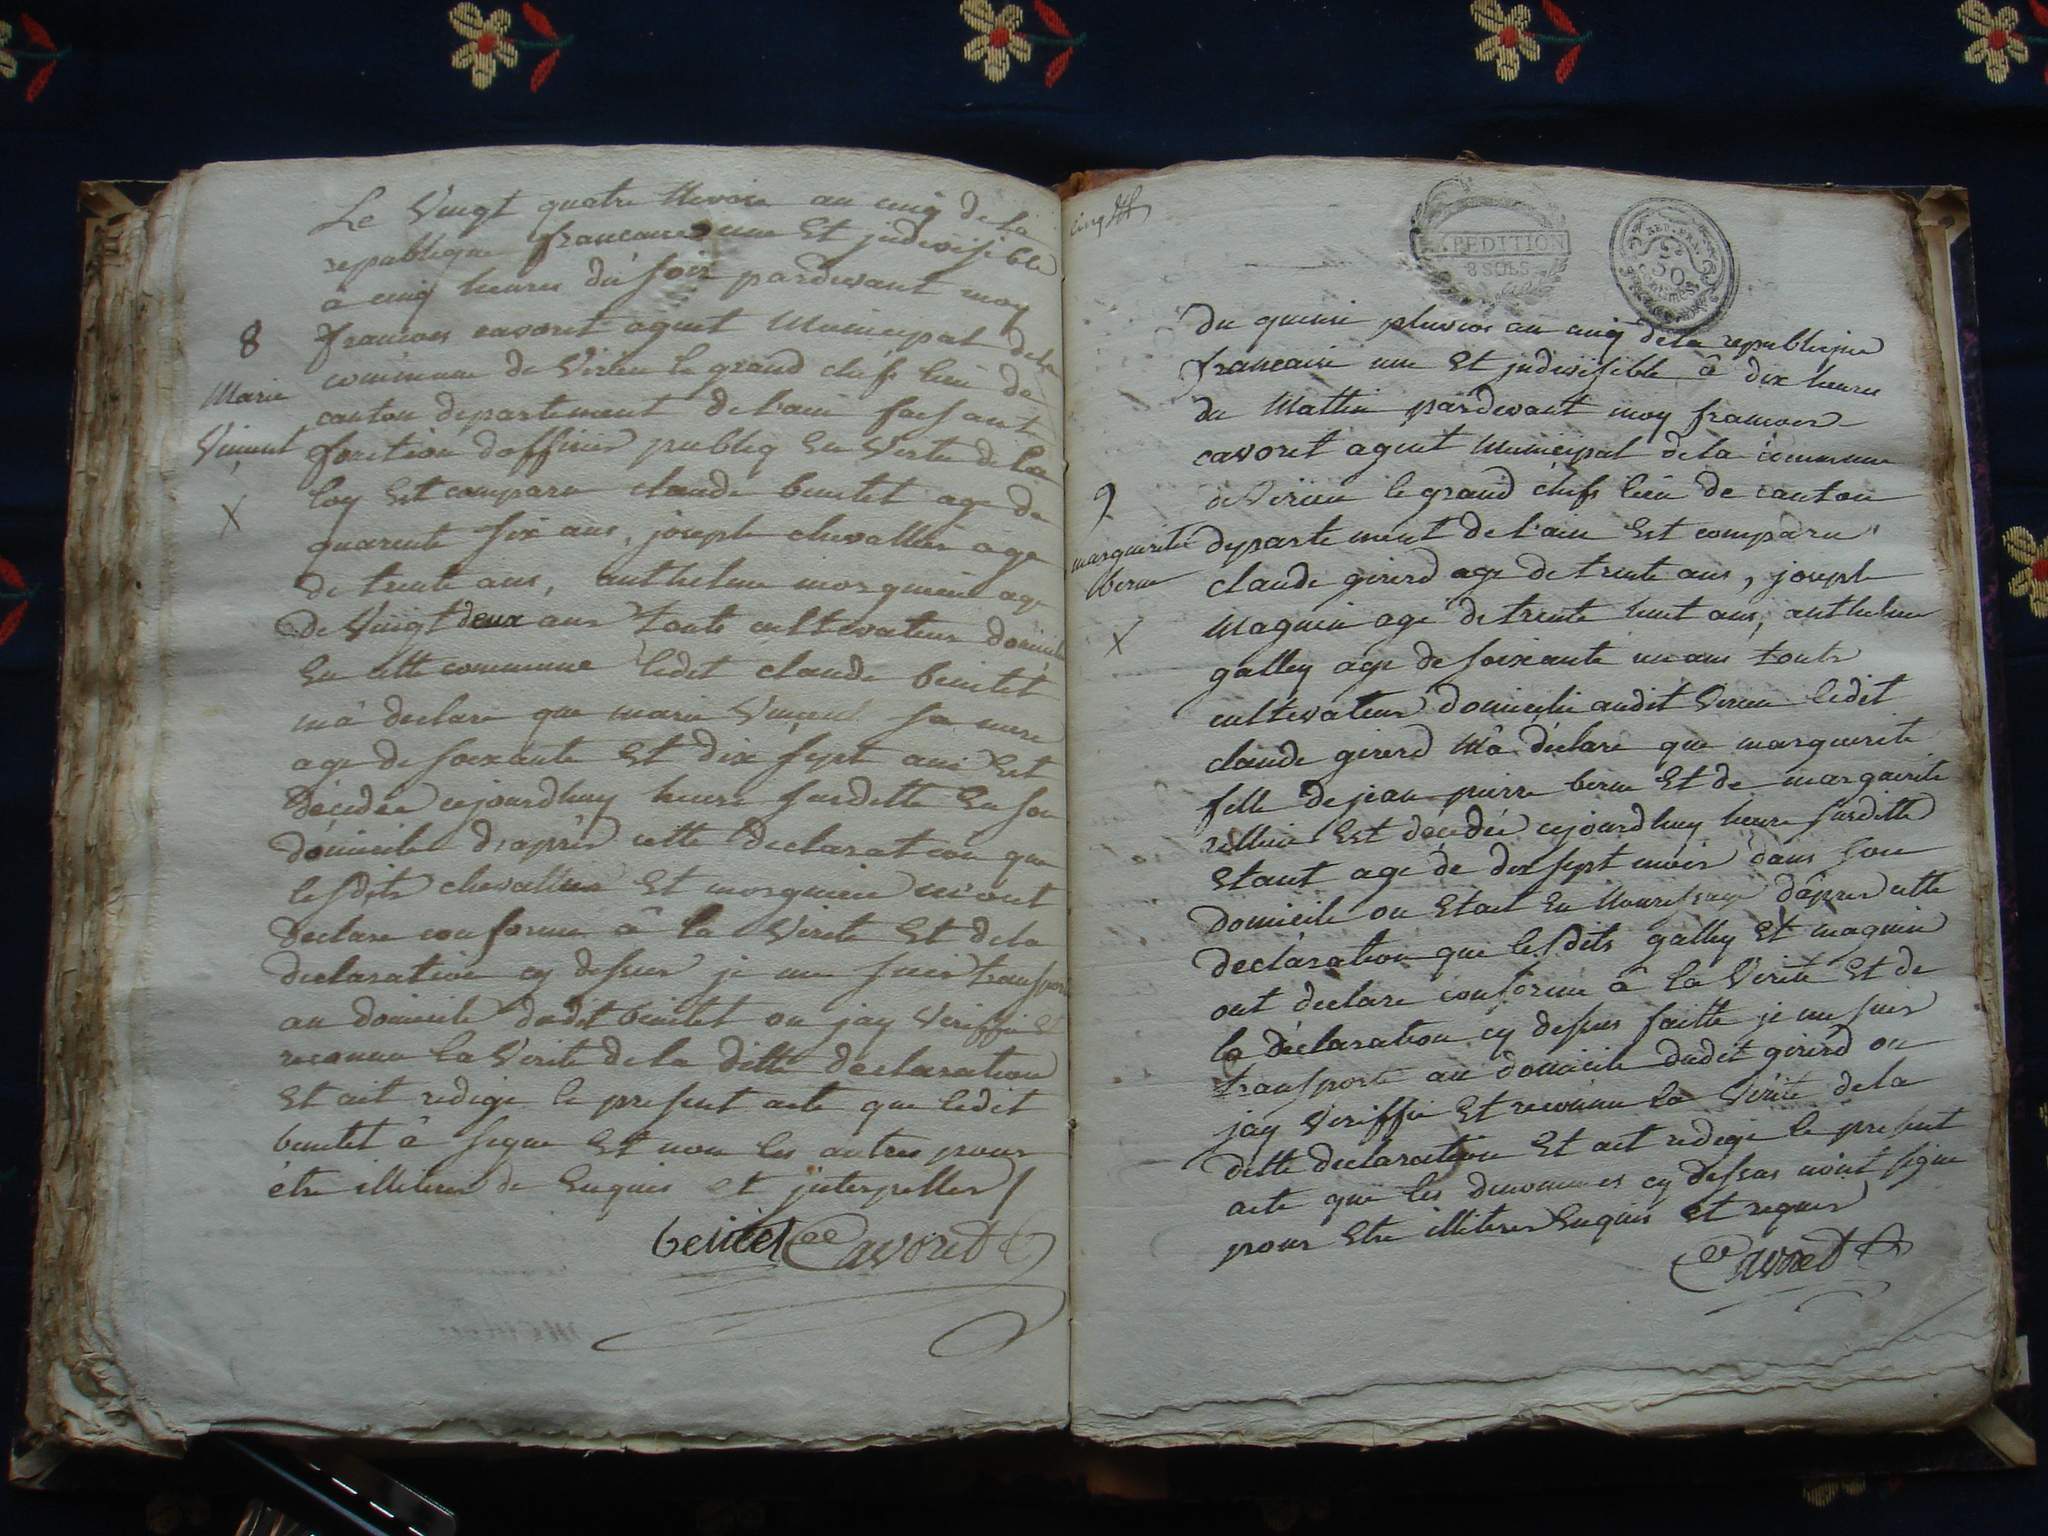 Le Vingt quatre Nivose au cinq de la
republique francaise une Et jndivisible
a cinq heures du soir pardevant moy
8
francois cavoret agent Municipal de la
commune de Virieu le grand chef lieu de
Marie
canton departement de l'ain faisant
Vincent
fonction dofficier publiq En Vertu de la
X
loy Est comparu claude beuitet age de
quarente six ans, joseph chevallier age
de trente ans, anthelme morgnieu age
de Vingt deux ans touts cultivateurs domicilie
En cette commune ledit claude beuitet
m'â declare que marie Vincent sa mere
age de soixante Et dix sept ans Est
décédée cejourdhuy heure susditte En son
domicile d'après cette declaration que
lesdits chevallier Et morgnieu m'ont
declare conforme â la Verite Et de la
declaration cy dessus je me suis transporte
au domicile dudit beuitet ou jay Veriffie Et
reconnu la Verite de la ditte declaration
Et ait redige le present acte que ledit
beuitet â signe Et non les autres pour
être illiterés de Enquis et jnterpelles /
beuitet Cavoret
cinq
EXPEDITION
8 SOLS
REP. FRA.
50
centimes
du quinse pluvios au cinq de la republique
francaise une Et jndivisible â dix heures
du Mattin pardevant moy francois
cavoret agent Municipal de la commune
de Virieu le grand chef lieu de canton
9
departement de l'ain Est comparu
marguerite
berne
claude girerd age de trente ans, joseph
X
Magnin age de trente huit ans, anthelme
galley age de soixante un ans touts
cultivateurs domicilie audit Virieu ledit
claude girerd M'â déclare que marguerite
fille de jean pierre berne Et de marguerite
rellieu Est décédée cejourdhuy heure susditte
Etant age de dix sept mois dans son
domicile ou Etait En Nourissage d'apres cette
déclaration que lesdits galley Et magnin
ont declare conforme â la Verité Et de
la déclaration cy dessus faitte je me suis
transporte au domicile dudit girerd ou
jay Veriffie Et reconnu la Vérité de la
ditte declaration Et ait redige le present
acte que les denommes cy dessus n'ont signe
pour Etre illiteres Enquis et requis
Cavoret